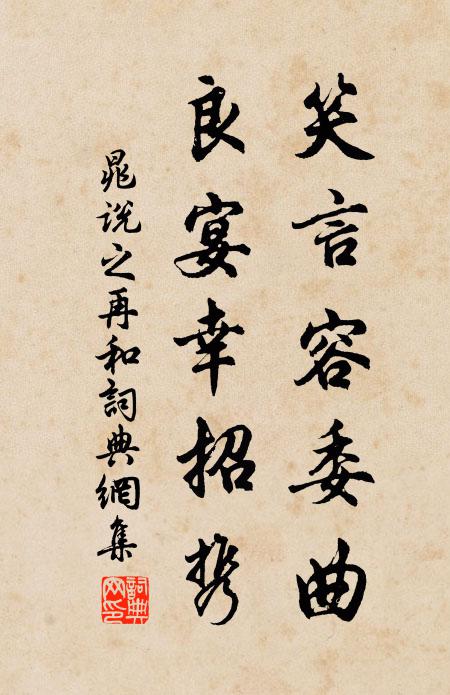 笑言容委曲
良宴幸招携
晁说之再和詞典網集
詞典